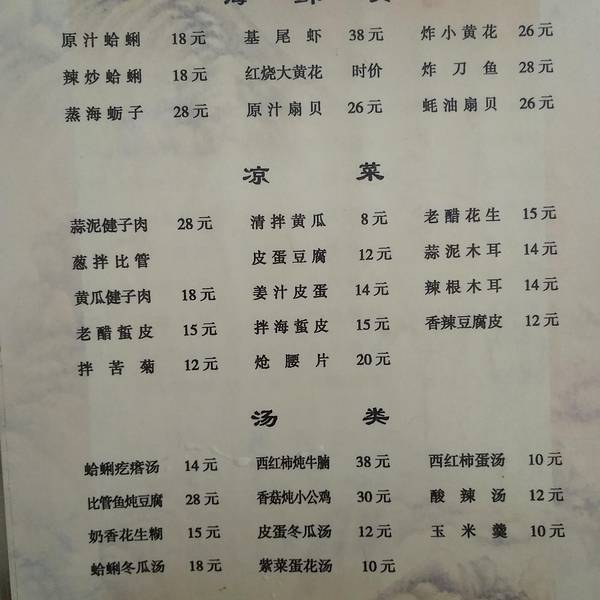 海鲜类
原汁蛤蜊 18元 基尾虾 38元 炸小黄花 26元
辣炒蛤蜊 18元 红烧大黄花 时价 炸刀鱼 28元
蒸海蛎子 28元 原汁扇贝 26元 蚝油扇贝 26元
凉菜
蒜泥健子肉 28元 清拌黄瓜 8元 老醋花生 15元
葱拌比管 皮蛋豆腐 12元 蒜泥木耳 14元
黄瓜健子肉 18元 姜汁皮蛋 14元 辣根木耳 14元
老醋蜇皮 15元 拌海蜇皮 15元 香辣豆腐皮 12元
拌苦菊 12元 炝腰片 20元
汤类
蛤蜊疙瘩汤 14元 西红柿炖牛腩 38元 西红柿蛋汤 10元
比管鱼炖豆腐 28元 香菇炖小公鸡 30元 酸辣汤 12元
奶香花生糊 15元 皮蛋冬瓜汤 12元 玉米羹 10元
蛤蜊冬瓜汤 18元 紫菜蛋花汤 10元